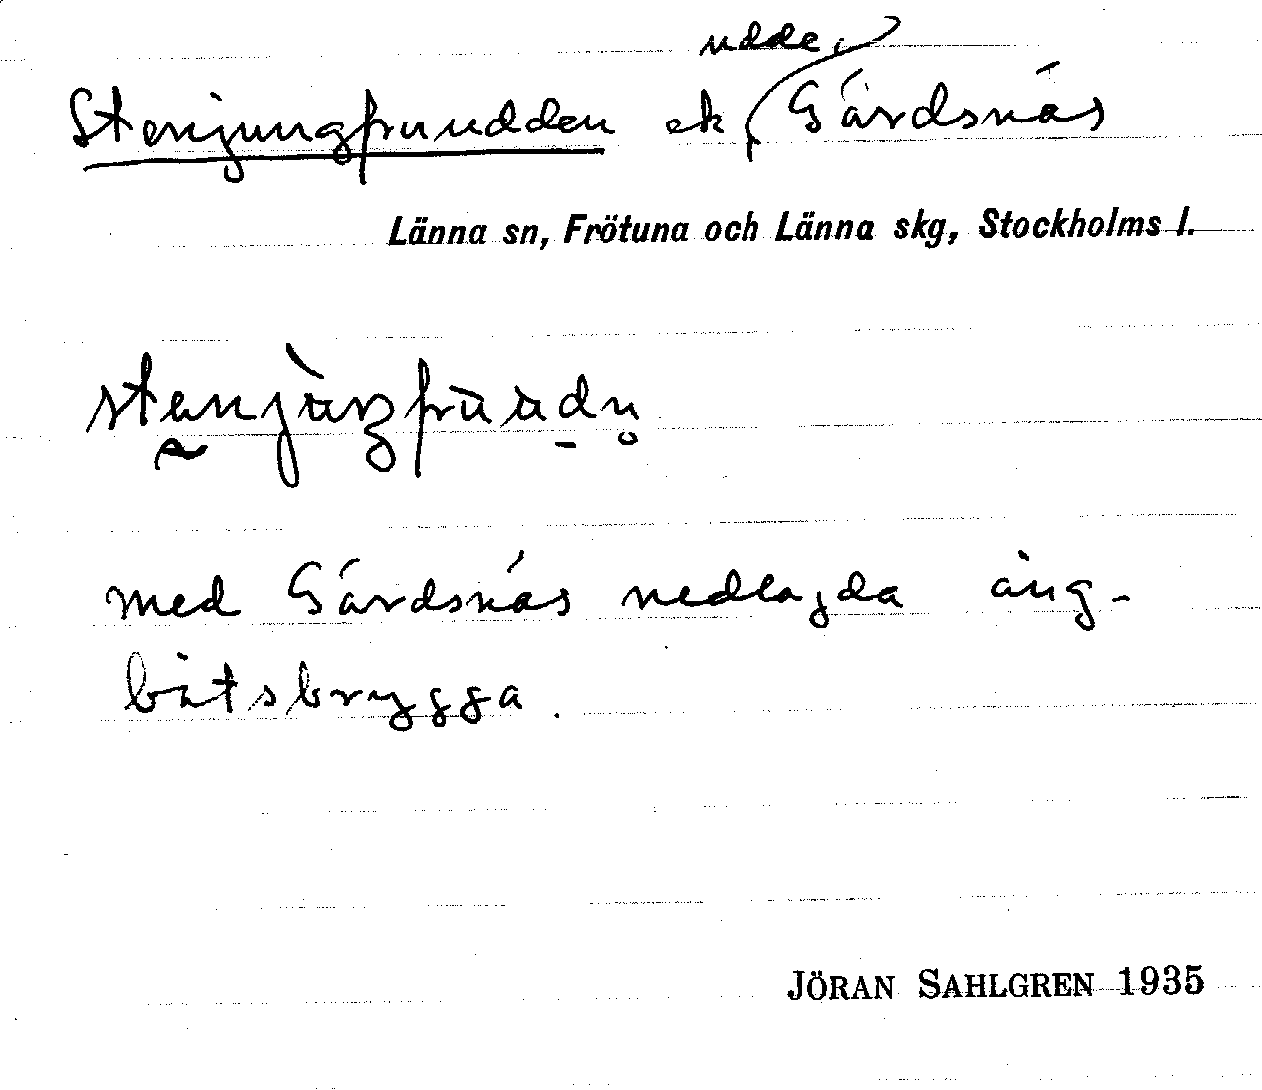 udde,
Stenjungfruudden ek Gärdsnäs
Länna sn, Frötuna och Länna skg, Stockholms l.
med Gärdsnäs nedlagda ång-
båtsbrygga.
JÖRAN SAHLGREN 1935